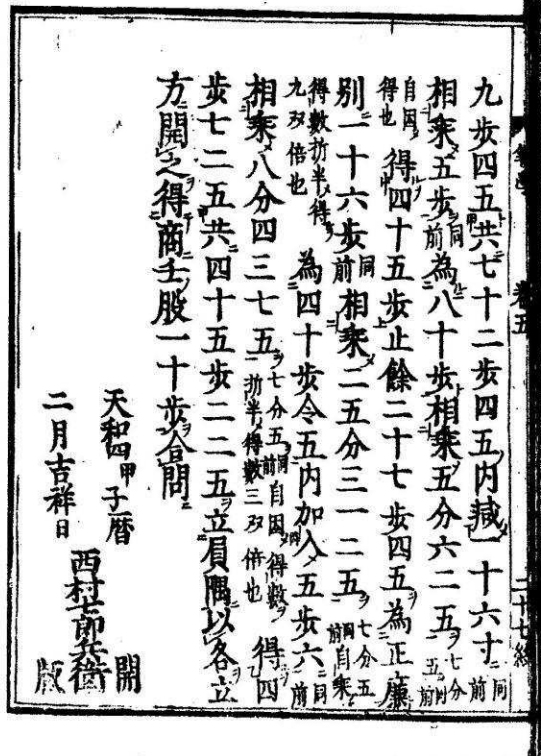 九歩四五共七十二歩四五内減一十六寸同前
相乗五歩同前為八十歩相乗五分六二五七分五同前
自因得也得四十五歩止餘二十七歩四五為正廉
別一十六歩同前相乗二五分三一二五七分五同前自乗
得数折半得九双倍也為四十歩令五内加入五歩六同前
相乗八分四三七五七分五同前自因得数折半得数三双倍也得四
歩七二五共四十五歩二二五立負隅以各立
方開之得商壬股一十歩合問
天和四甲子暦
二月吉祥日
西村七郎兵衛
開版
巻五
二十七終